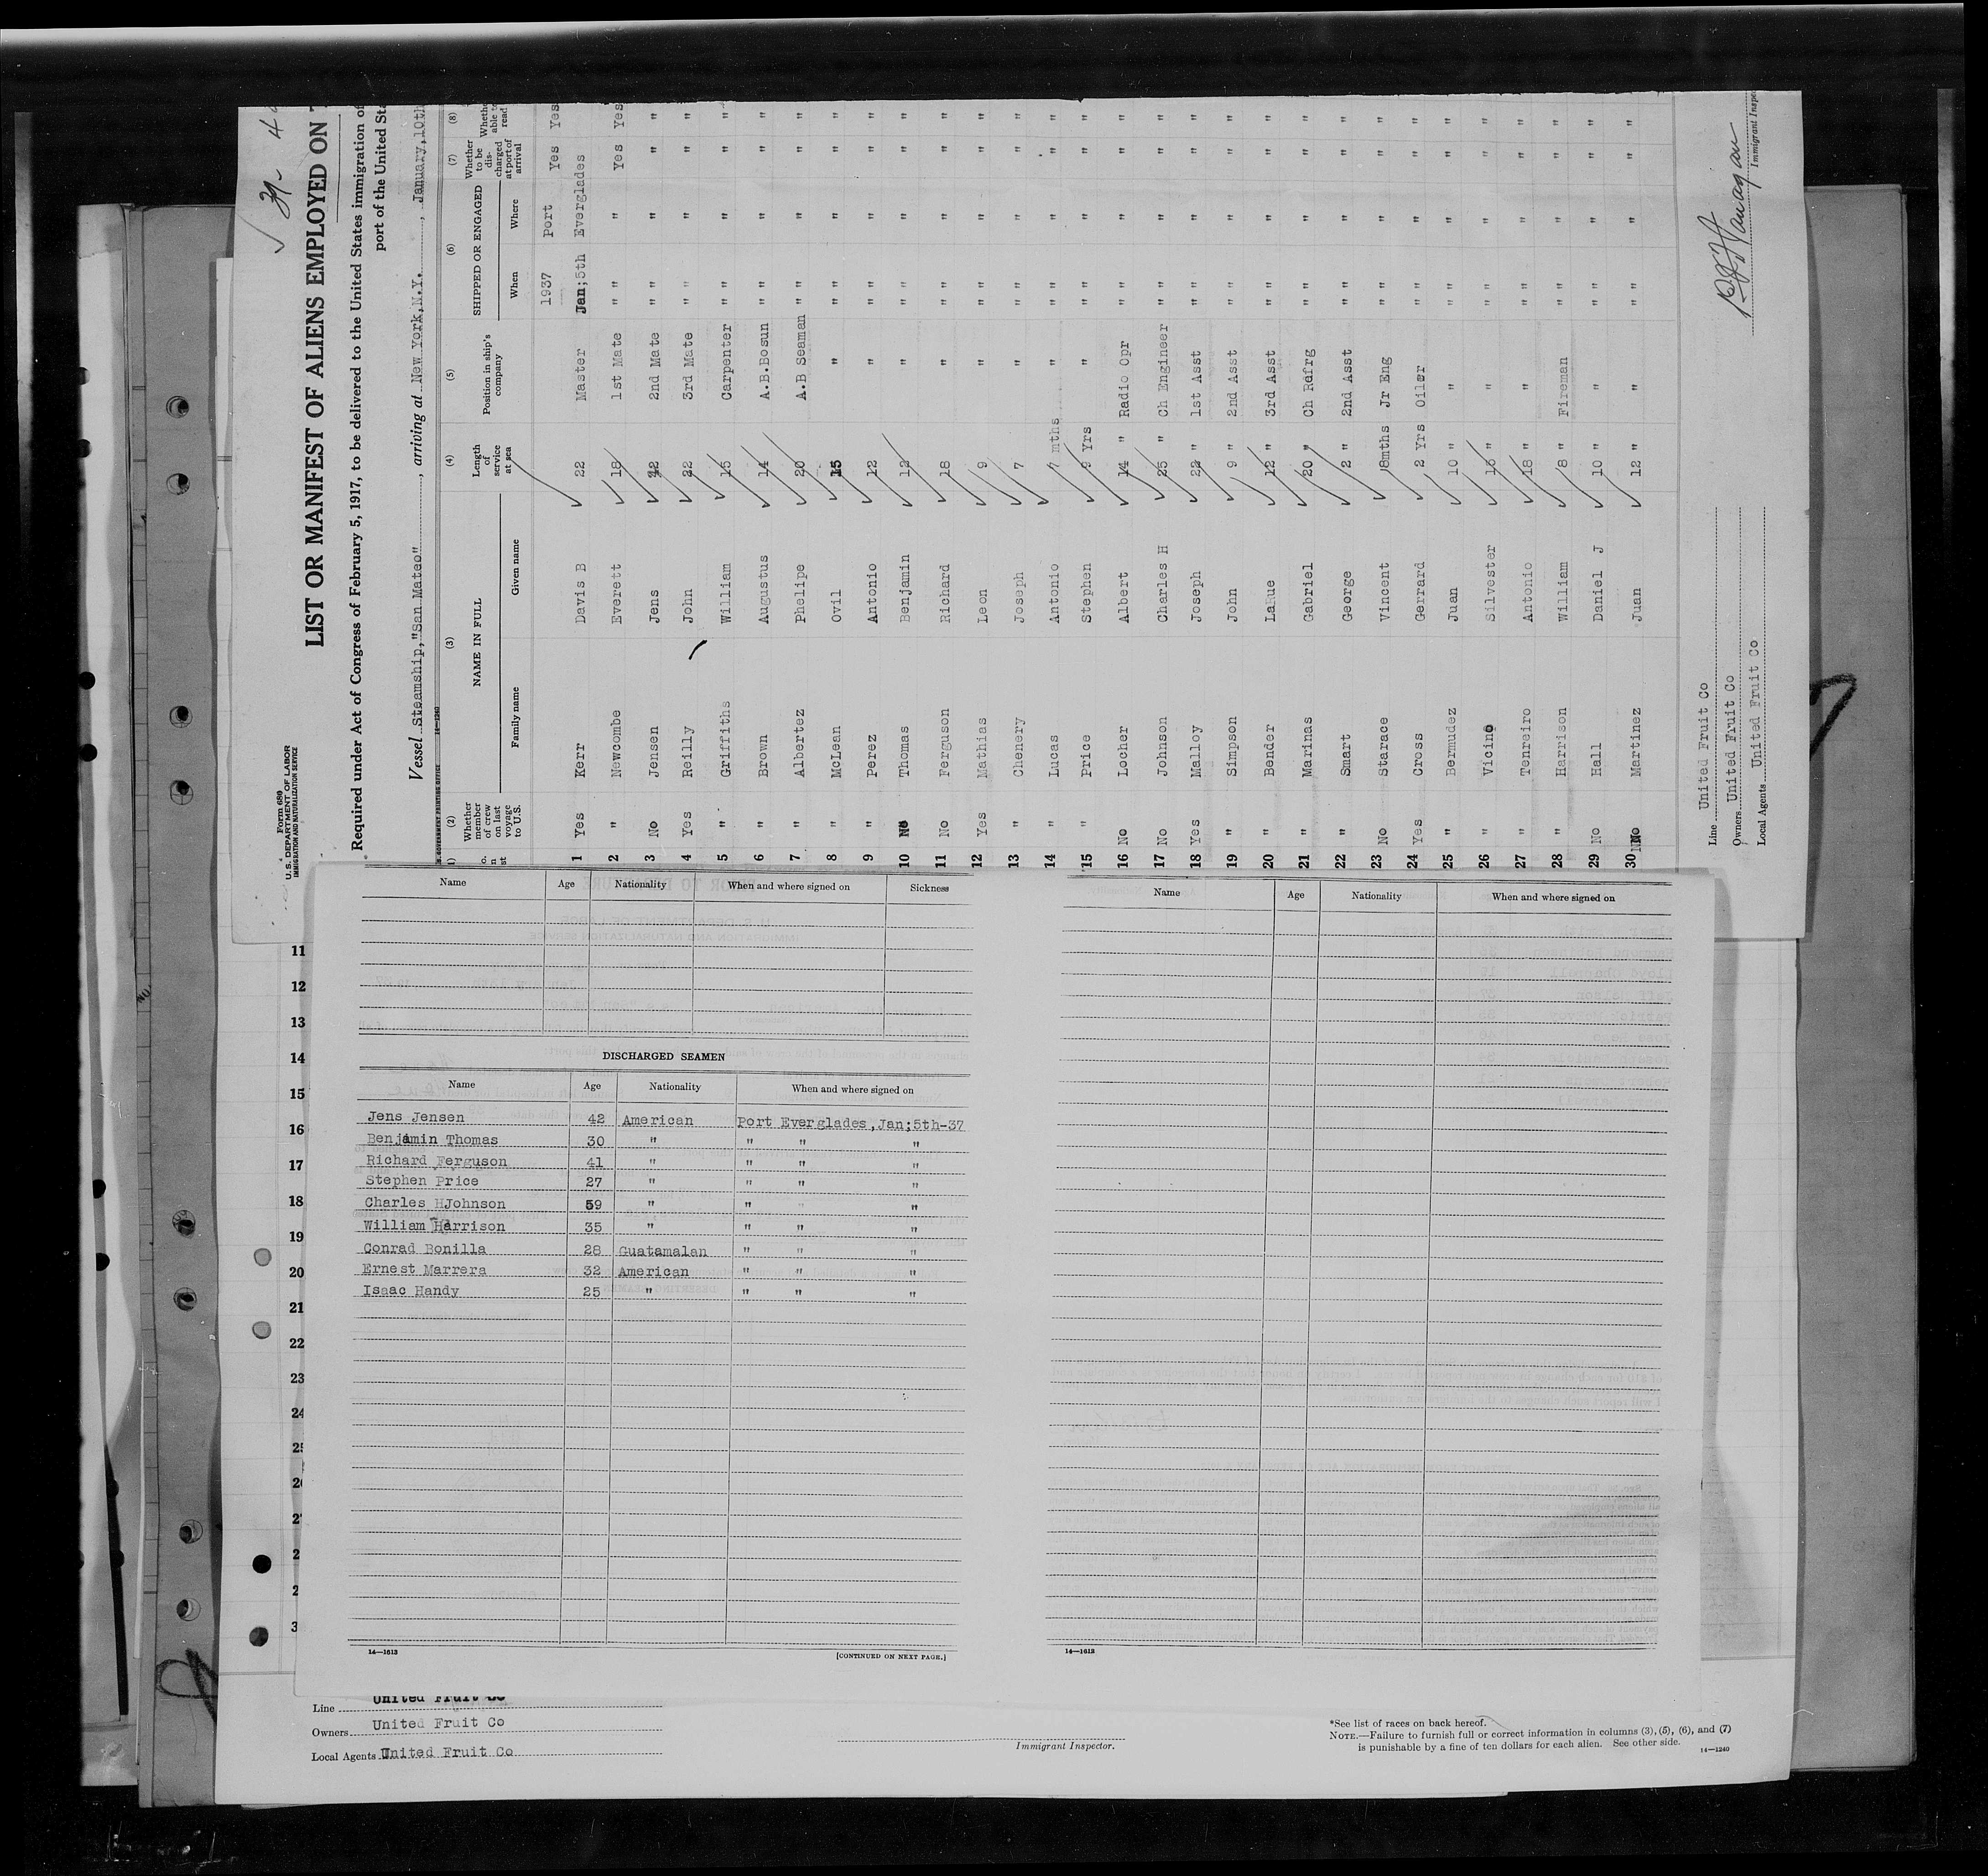 Form 680
U. S. DEPARTMENT OF LABOR
IMMIGRATION AND NATURALIZATION SERVICE
LIST OR MANIFEST OF ALIENS EMPLOYED ON
Required under Act of Congress of February 5, 1917, to be delivered to the United States immigration of
port of the United Sta
Vessel Steamship,"San Mateo", arriving at New York,N.Y., January,10th
(2) (3) (4) (5) (6) (7) (8)
Whether member of crew on last voyage to U.S. NAME IN FULL Family name Given name Length of service at sea Position in ship's company SHIPPED OR ENGAGED When Where Whether to be discharged at port of arrival Whethe able to read
1937 Port
1 Yes Kerr Davis B 22 Master Jan;5th Everglades Yes Yes
2 " Newcombe Everett 18 1st Mate " " " Yes Yes
3 No Jensen Jens 2nd Mate " " " " "
4 Yes Reilly John 22 3rd Mate " " " " "
5 " Griffiths William 15 Carpenter " " " " "
6 " Brown Augustus 14 A.B.Bosun " " " " "
7 " Albertez Phelipe 20 A.B Seaman " " " " "
8 " McLean Ovil 15 " " " " " "
9 " Perez Antonio 12 " " " " " "
10 No Thomas Benjamin " " " " " "
11 No Ferguson Richard 18 " " " " " "
12 Yes Mathias Leon 9 " " " " " "
13 " Chenery Joseph 7 " " " " " "
14 " Lucas Antonio 7 mths " " " " " "
15 " Price Stephen 9 Yrs " " " " " "
16 No Locher Albert 14 " Radio Opr " " " " "
17 No Johnson Charles H 25 " Ch Engineer " " " " "
18 Yes Malloy Joseph 22 " 1st Asst " " " " "
19 " Simpson John 9 " 2nd Asst " " " " "
20 " Bender LaRue 12 " 3rd Asst " " " " "
21 " Marinas Gabriel 20 " Ch Refrg " " " " "
22 " Smart George 2 " 2nd Asst " " " " "
23 No Starace Vincent 8mths Jr Eng " " " " "
24 Yes Cross Gerrard 2 Yrs Oiler " " " " "
25 " Bermudez Juan 10 " " " " " " "
26 " Vicino Silvester " " " " " " "
27 " Tenreiro Antonio 18 " " " " " " "
28 " Harrison William 8 " Fireman " " " " "
29 No Hall Daniel J 10 " " " " " " "
30 No Martinez Juan 12 " " " " " " "
Line United Fruit Co
Owners United Fruit Co
Local Agents United Fruit Co
Immigrant Inspec
Name Age Nationality When and where signed on Sickness
DISCHARGED SEAMEN
Name Age Nationality When and where signed on
Jens Jensen 42 American Port Everglades,Jan;5th-37
Benjamin Thomas 30 " " " "
Richard Ferguson 41 " " " "
Stephen Price 27 " " " "
Charles HJohnson 59 " " " "
William Harrison 35 " " " "
Conrad Bonilla 28 Guatamalan " " "
Ernest Marrera 32 American " " "
Isaac Handy 25 " " " "
14—1613
[CONTINUED ON NEXT PAGE.]
Name Age Nationality When and where signed on
14—1613
11
12
13
14
15
16
17
18
19
20
21
22
23
24
Line United Fruit Co
Owners United Fruit Co
Local Agents United Fruit Co
Immigrant Inspector.
*See list of races on back hereof.
NOTE.—Failure to furnish full or correct information in columns (3), (5), (6), and (7)
is punishable by a fine of ten dollars for each alien. See other side.
14—1240